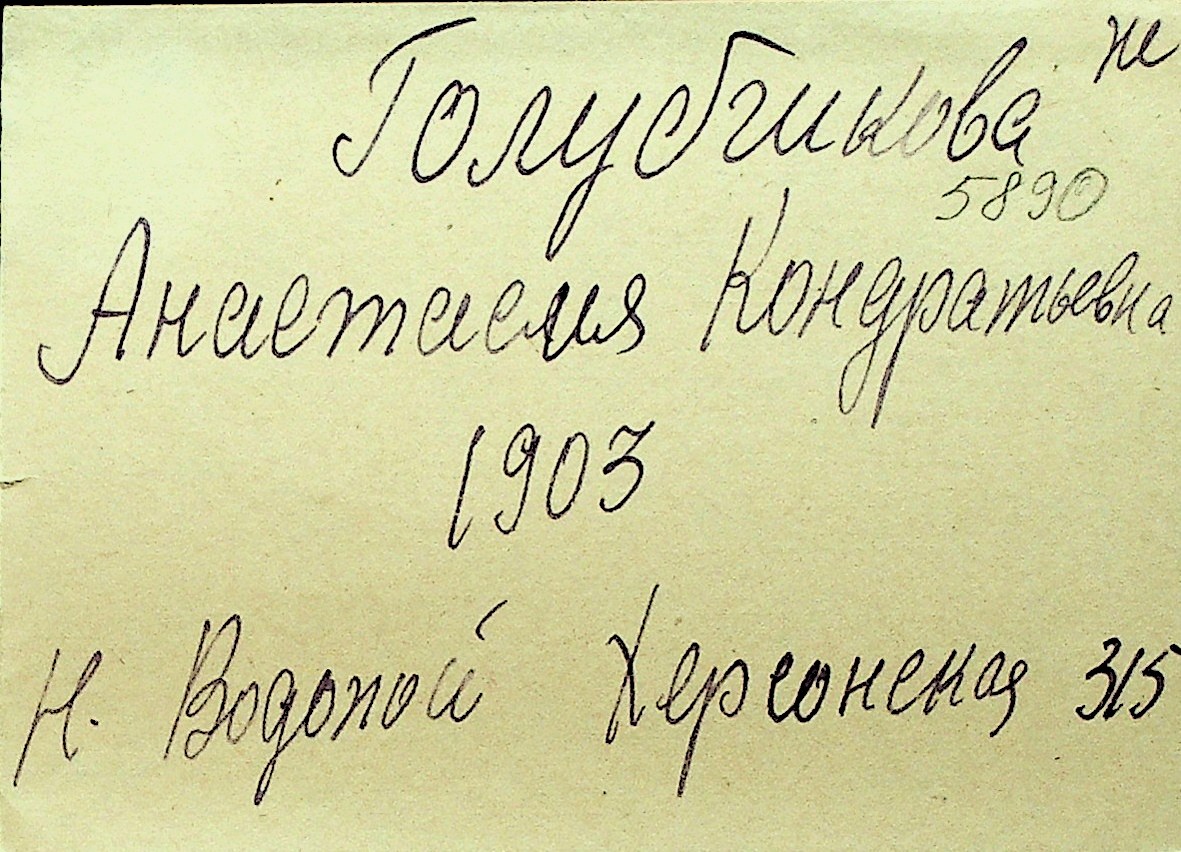 же
Голубчикова
5890
Анастасия Кондратьевна
1903
Н. Водопой Херсонская 315